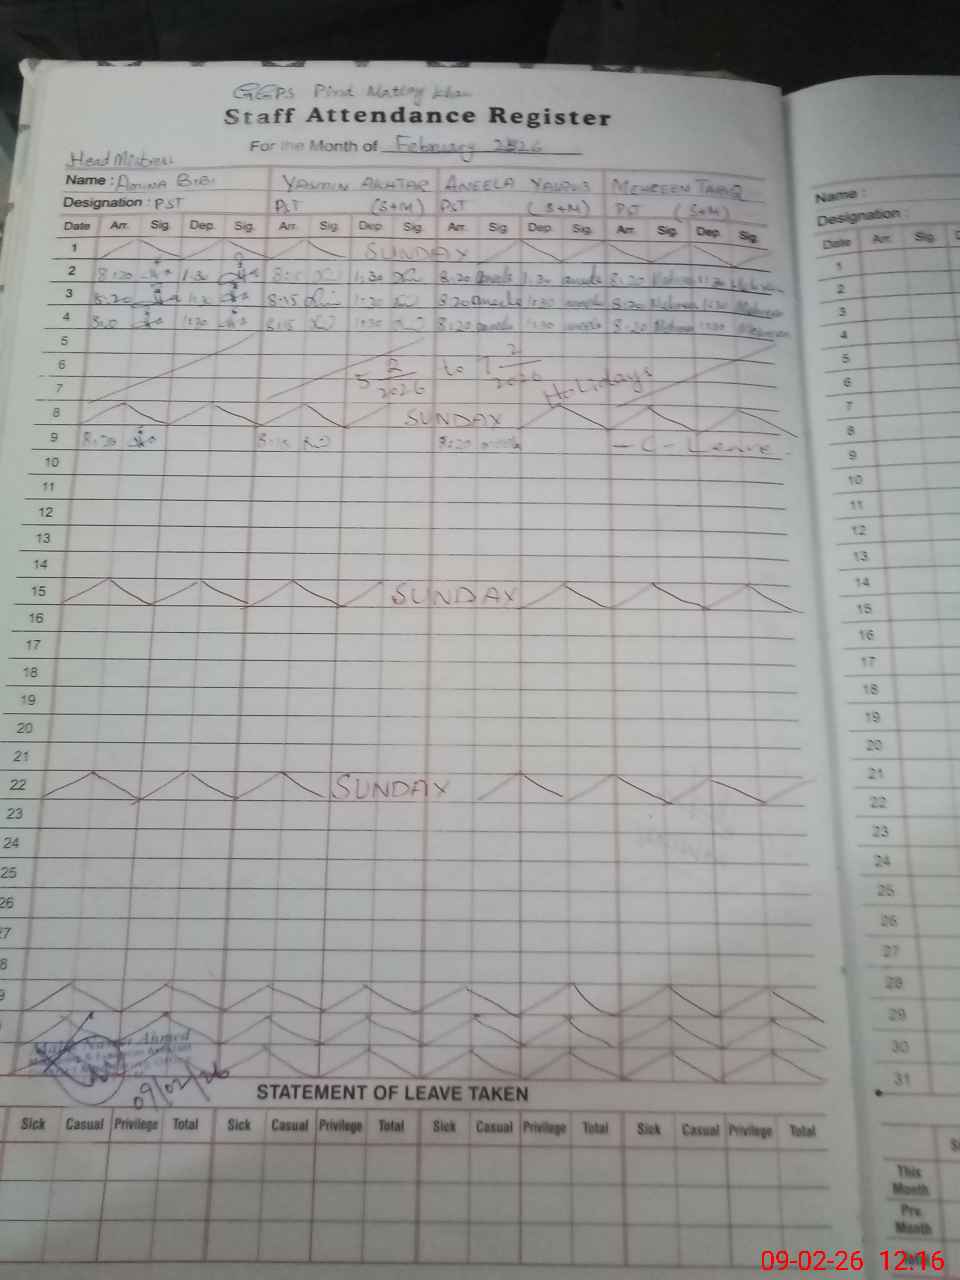 GGPS Pind Matlay Khan
Staff Attendance Register
For the Month of February 2026
Head Mistress
Name : AMINA BIBI YASMIN AKHTAR ANEELA MEHREEN TARIQ
Designation : PST PST (S+M) PST (S+M) PST (S+M)
Date Arr. Sig. Dep. Sig. Arr. Sig. Dep. Sig. Arr. Sig. Dep. Sig. Arr. Sig. Dep. Sig.
1 SUNDAY
2 8:20 1:30 8:15 1:30 8:20 Aneela 1:30 Aneela 8:20 Mehreen 1:30 Mehreen
3 8:20 8:15 1:30 8:20 Aneela 1:30 Aneela 8:20 Mehreen 1:30 Mehreen
4 1:30 8:15 1:30 8:20 Aneela 1:30 Aneela 8:20 Mehreen 1:30 Mehreen
5
6 5 2/2026 to 7 2/2026 Holidays
7
8 SUNDAY
9 8:20 8:15 8:20 - C - Leave
10
11
12
13
14
15 SUNDAY
16
17
18
19
20
21
22 SUNDAY
23
24
25
26
27
28
29
Ahmed
09/02/26
STATEMENT OF LEAVE TAKEN
Sick Casual Privilege Total Sick Casual Privilege Total Sick Casual Privilege Total Sick Casual Privilege Total
Name :
Designation :
Date Arr. Sig.
1
2
3
4
5
6
7
8
9
10
11
12
13
14
15
16
17
18
19
20
21
22
23
24
25
26
27
28
29
30
31
This Month
Pre. Month
Total
09-02-26 12:16